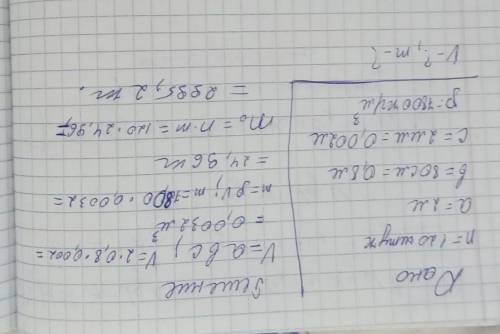 Дано
n=120 штук
a=2м
b=80см=0,8м
c=2мм=0,002м
ρ=7800 кг/м³
V-?, m-?
Решение
V=abc; V=2·0,8·0,002=
=0,0032 м³
m=ρV; m=7800·0,0032=
=24,96 кг
m₀=n·m=120·24,96=
=2995,2 кг.